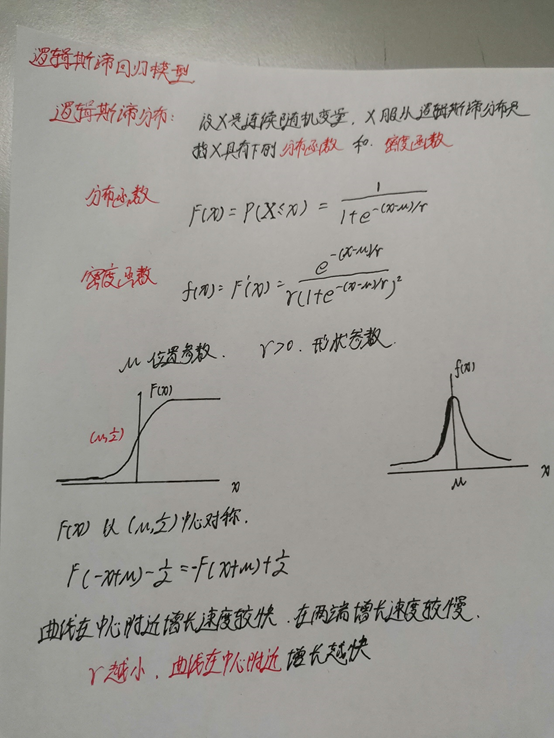 逻辑斯谛回归模型
逻辑斯谛分布: 设X是连续随机变量, X服从逻辑斯谛分布是
指X具有下列分布函数 和 密度函数
分布函数 F(x) = P(X≤x) = 1/(1+e^{-(x-μ)/γ})
密度函数 f(x) = F'(x) = e^{-(x-μ)/γ}/(γ(1+e^{-(x-μ)/γ})^2)
μ 位置参数. γ>0. 形状参数.
F(x)
(μ,1/2)
x
f(x)
μ
x
F(x) 以 (μ,1/2) 中心对称.
F(-x+μ)-1/2=-F(x+μ)+1/2
曲线在中心附近增长速度较快. 在两端增长速度较慢.
γ越小. 曲线在中心附近增长越快